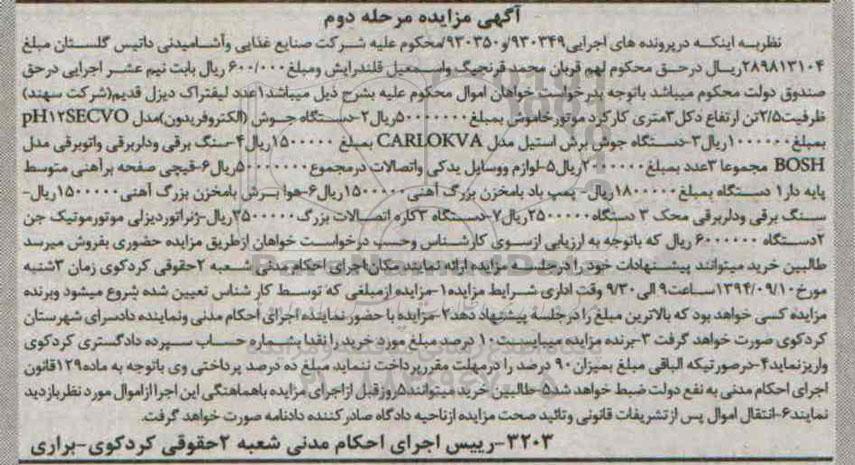 آگهی مزایده مرحله دوم
نظربه اینکه درپرونده های اجرایی۹۳۰۳۴۹/و۹۳۰۳۵۰/محکوم علیه شرکت صنایع غذایی وآشامیدنی داتیس گلستان مبلغ
۲۸۹۸۱۳۱۰۴ریال درحق محکوم لهم قربان محمد قرنجیگ واسمعیل قلندرایش ومبلغ۶۰۰/۰۰۰ ریال بابت نیم عشر اجرایی درحق
صندوق دولت محکوم میباشد باتوجه بدرخواست خواهان اموال محکوم علیه بشرح ذیل میباشد۱عدد لیفتراک دیزل قدیم(شرکت سهند)
ظرفیت۲/۵تن ارتفاع دکل۳متری کارکرد موتورخاموش بمبلغ۵۰۰۰۰۰۰۰ریال۲-دستگاه جوش (الکتروفریدون)مدل pH۱۲SECVO
بمبلغ۱۰۰۰۰۰۰۰ریال۳-دستگاه جوش برش استیل مدل CARLOKVA بمبلغ ۱۵۰۰۰۰۰ریال۴-سنگ برقی ودلربرقی واتوبرقی مدل
BOSH مجموعا ۳عدد بمبلغ۲۰۰۰۰۰۰ریال۵-لوازم ووسایل یدکی واتصالات درمجموع۵۰۰۰۰۰۰ریال۶-قیچی صفحه برآهنی متوسط
پایه دار۱ دستگاه بمبلغ۱۸۰۰۰۰۰ریال- پمپ باد بامخزن بزرگ آهنی۱۵۰۰۰۰۰ریال۶-هوا برش بامخزن بزرگ آهنی۱۵۰۰۰۰۰ریال-
سنگ برقی ودلربرقی محک ۳ دستگاه۲۵۰۰۰۰۰ریال۷-دستگاه ۳کاره اتصالات بزرگ۳۵۰۰۰۰۰ریال-ژنراتوردیزلی موتورموتیک جن
۲دستگاه ۶۰۰۰۰۰۰ ریال که باتوجه به ارزیابی ازسوی کارشناس وحسب درخواست خواهان ازطریق مزایده حضوری بفروش میرسد
طالبین خرید میتوانند پیشنهادات خود را درجلسه مزایده ارائه نمایند مکان اجرای احکام مدنی شعبه ۲حقوقی کردکوی زمان ۳شنبه
مورخ۱۳۹۴/۰۹/۱۰ساعت۹ الی۹/۳۰ وقت اداری شرایط مزایده۱-مزایده ازمبلغی که توسط کارشناس تعیین شده شروع میشود وبرنده
مزایده کسی خواهد بود که بالاترین مبلغ را درجلسه پیشنهاد دهد۲-مزایده با حضور نماینده اجرای احکام مدنی ونماینده دادسرای شهرستان
کردکوی صورت خواهد گرفت ۳-برنده مزایده میبایست۱۰ درصد مبلغ مورد خرید را نقدا بشماره حساب سپرده دادگستری کردکوی
واریزنماید۴-درصورتیکه الباقی مبلغ بمیزان۹۰ درصد را درمهلت مقررپرداخت ننماید مبلغ ده درصد پرداختی وی باتوجه به ماده۱۲۹قانون
اجرای احکام مدنی به نفع دولت ضبط خواهد شد۵-طالبین خرید میتوانند۵روزقبل ازاجرای مزایده باهماهنگی این اجرا ازاموال مورد نظربازدید
نمایند۶-انتقال اموال پس ازتشریفات قانونی وتائید صحت مزایده ازناحیه دادگاه صادرکننده دادنامه صورت خواهد گرفت.
۳۲۰۳-رییس اجرای احکام مدنی شعبه ۲حقوقی کردکوی-براری